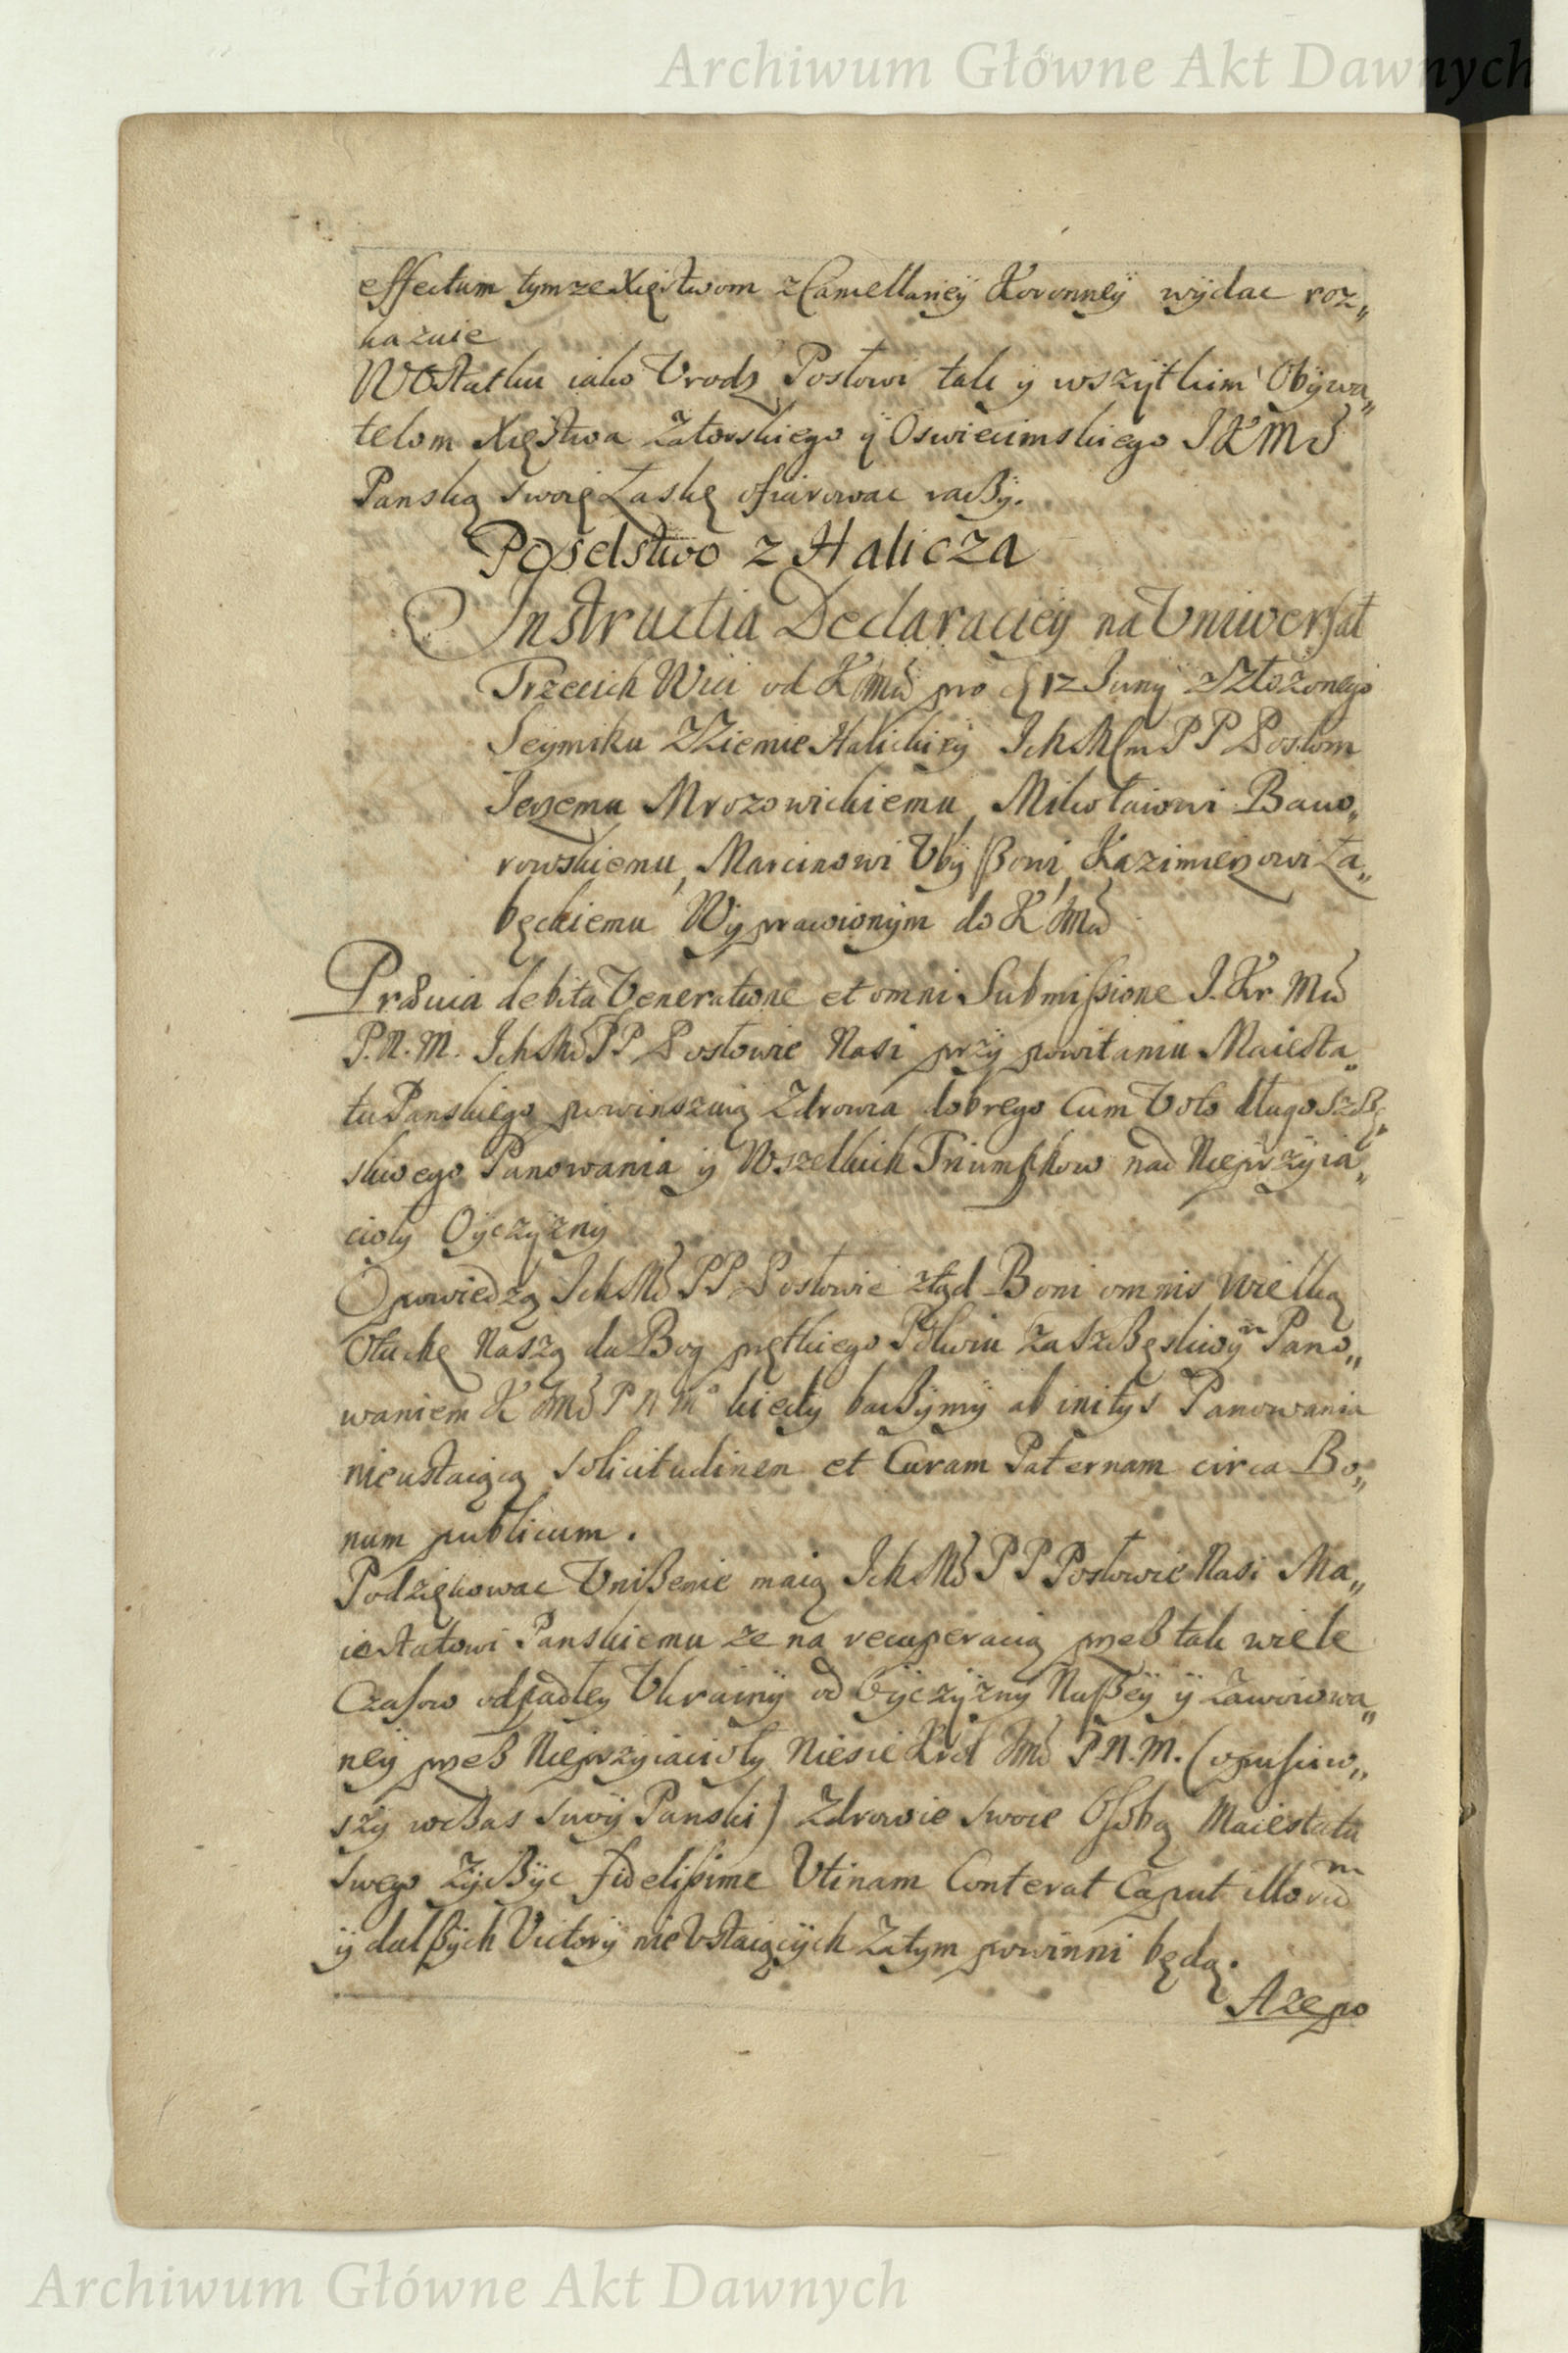 Archiwum Główne Akt Dawnych
effectum tymze Xięstwom z Cancellariey Koronney wydac roz„
kazuie
W Ostatku iako Vrodz Posłowi tak y wszytkim Obywa„
telom Xięstwa Zatorskiego y Oswiecimskiego JKMċ
Panską swoię Łaskę ofiarowac raczy.
Poselstwo z Halicza
Instructia Declaraciey na Vniwersał
Trzecich Wici od K Jmċi pro 12 Juny złożonego
Seymiku z Ziemie Halickiey Ich Mċm PP Posłom
Jerzemu Mrozowickiemu, Mikołaiowi Bawo„
rowskiemu, Marcinowi Vbyszowi, Kazimierzowi Ła„
będkiemu Wyprawionym do K Jmċi
Prævia debita Veneratione et omni Submissione J. Kr Mċi
P. N. M. Ich Mċ PP Posłowie Nasi przy powitaniu Maiesta„
tu Panskiego powinszuią Zdrowia dobrego Cum Voto długo szczę„
sliwego Panowania y Wszelkich Triumphow nad Nieprzyia„
cioły Oyczyzny
Opowiedzą Ich Mċ PP Posłowie ztąd Boni omnis wielką
Otuchę Naszą da Bog prętkiego Pokoiu za szczęsliwym Pano„
waniem K Jmċi P N Mo kiedy baczymy ab initys Panowania
nieustaiącą solicitudinem et Curam Paternam circa Bo„
num publicum.
Podziękowac Vniżenie maią Ich Mċ PP Posłowie Nasi Ma„
iestatowi Panskiemu ze na recuperacią przez tak wiele
Czasow odpadłey Vkrainy od Oyczyzny Naszey y zawoiowa„
ney przez Nieprzyiacioły Niesie Krol Jmċ P. N. M. (opusciw„
szy wczas swoy Panski) Zdrowie swoie Osobą Maiestatu
swego życzyc fidelissime Vtinam Conterat Caput illorum
y dalszych Victory nieVstaiących Zatym powinni będą.
Aze po
Archiwum Główne Akt Dawnych